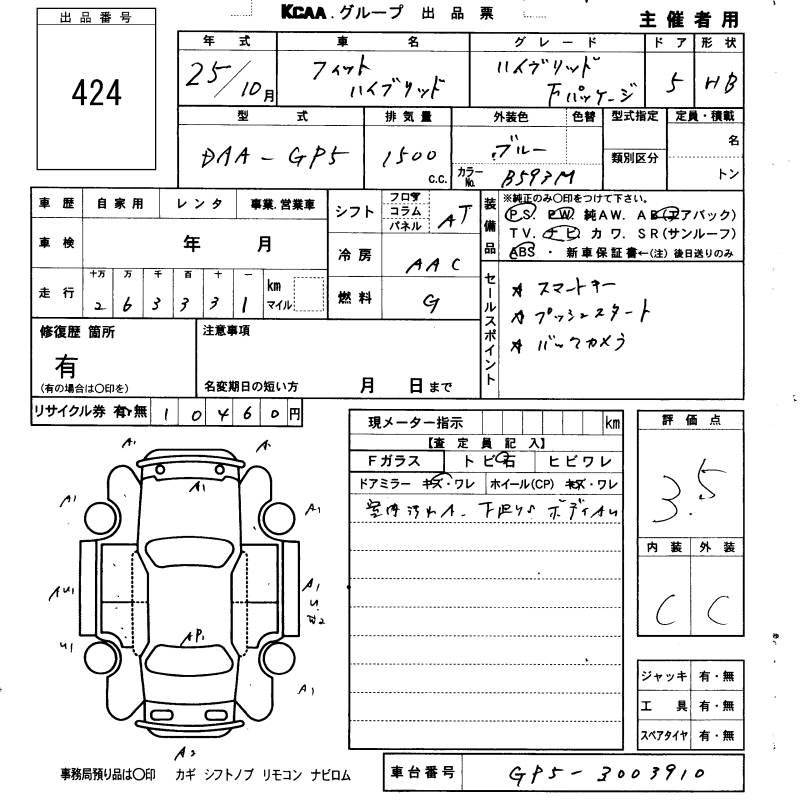 KCAA.グループ 出品票
主催者用
出品番号
424
年式 車名 グレード ドア 形状
25/10月 フィット ハイブリッド ハイブリッド Fパッケージ 5 HB
型式 排気量 外装色 色替 型式指定 定員・積載
DAA-GP5 1500 c.c. ブルー 類別区分 名
カラーNo. B593M トン
車歴 自家用 レンタ 事業.営業車
車検 年 月
走行 十万 万 千 百 十 一 km マイル
2 6 3 3 3 1
シフト フロア コラム パネル AT
冷房 AAC
燃料 G
装備品 ※純正のみ〇印をつけて下さい。
PS PW 純AW. AB(エアバック)
TV. ナビ カワ. SR(サンルーフ)
ABS ・ 新車保証書←(注) 後日送りのみ
セールスポイント
☆ スマートキー
☆ プッシュスタート
☆ バックカメラ
修復歴 箇所
有
(有の場合は〇印を)
注意事項
名変期日の短い方 月 日まで
リサイクル券 有・無 1 0 4 6 0 円
現メーター指示 km
【査定員記入】
Fガラス トビ石 ヒビワレ
ドアミラー キズ・ワレ ホイール(CP) キズ・ワレ
室内汚れA
評価点
3.5
内装 外装
C C
A1 A1
A1
A1 A1
AU1 A1
U1
AP1
A1
A2
ジャッキ 有・無
工具 有・無
スペアタイヤ 有・無
事務局預り品は〇印 カギ シフトノブ リモコン ナビロム
車台番号 GP5-3003910